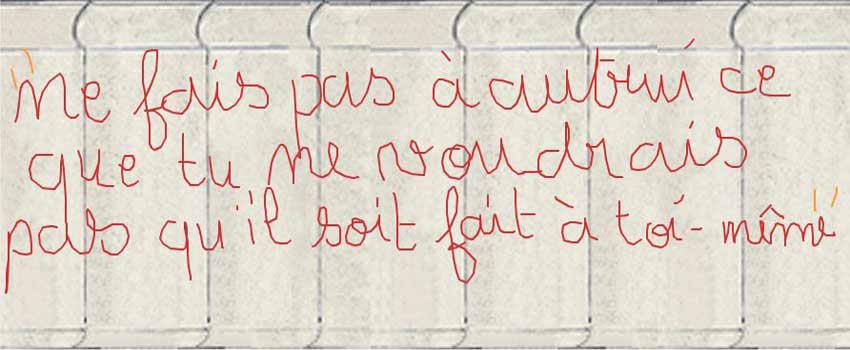 "Ne fais pas à autrui ce
que tu ne voudrais
pas qu'il soit fait à toi-même"